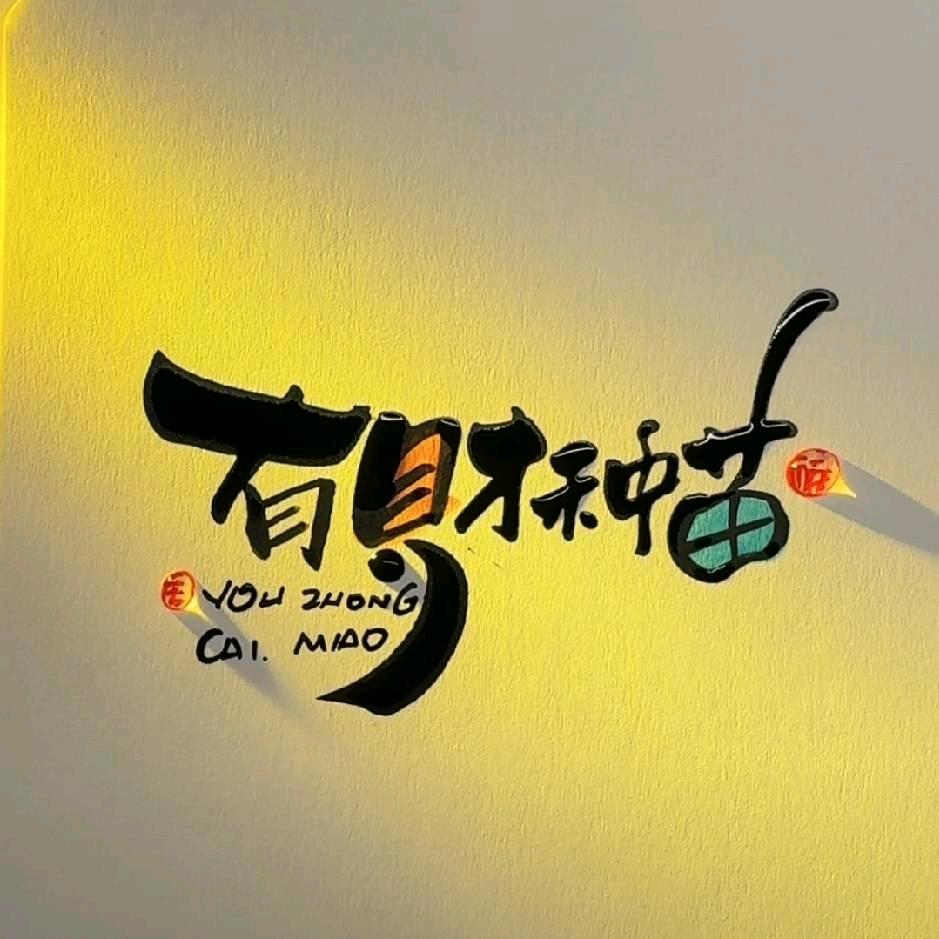 有财种苗
YOU ZHONG
CAI. MIAO